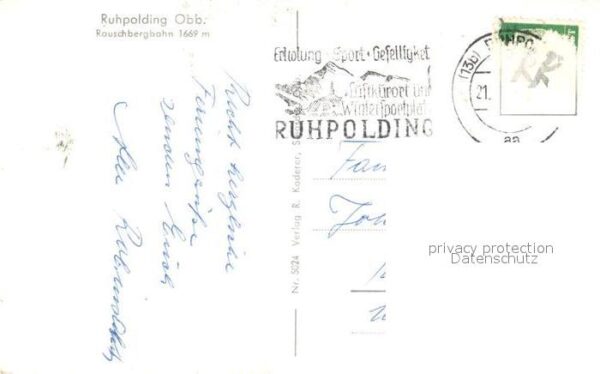 Ruhpolding Obb.
Rauschbergbahn 1669 m
Recht herzliche
Feriengrüße
senden Euch
Nr. 5024 Verlag R. Koderer, S
Erholung · Sport · Geselligkeit
Luftkurort und
Wintersportplatz
RUHPOLDING
(13b) RUHPO
21.
aa
Fam
privacy protection
Datenschutz